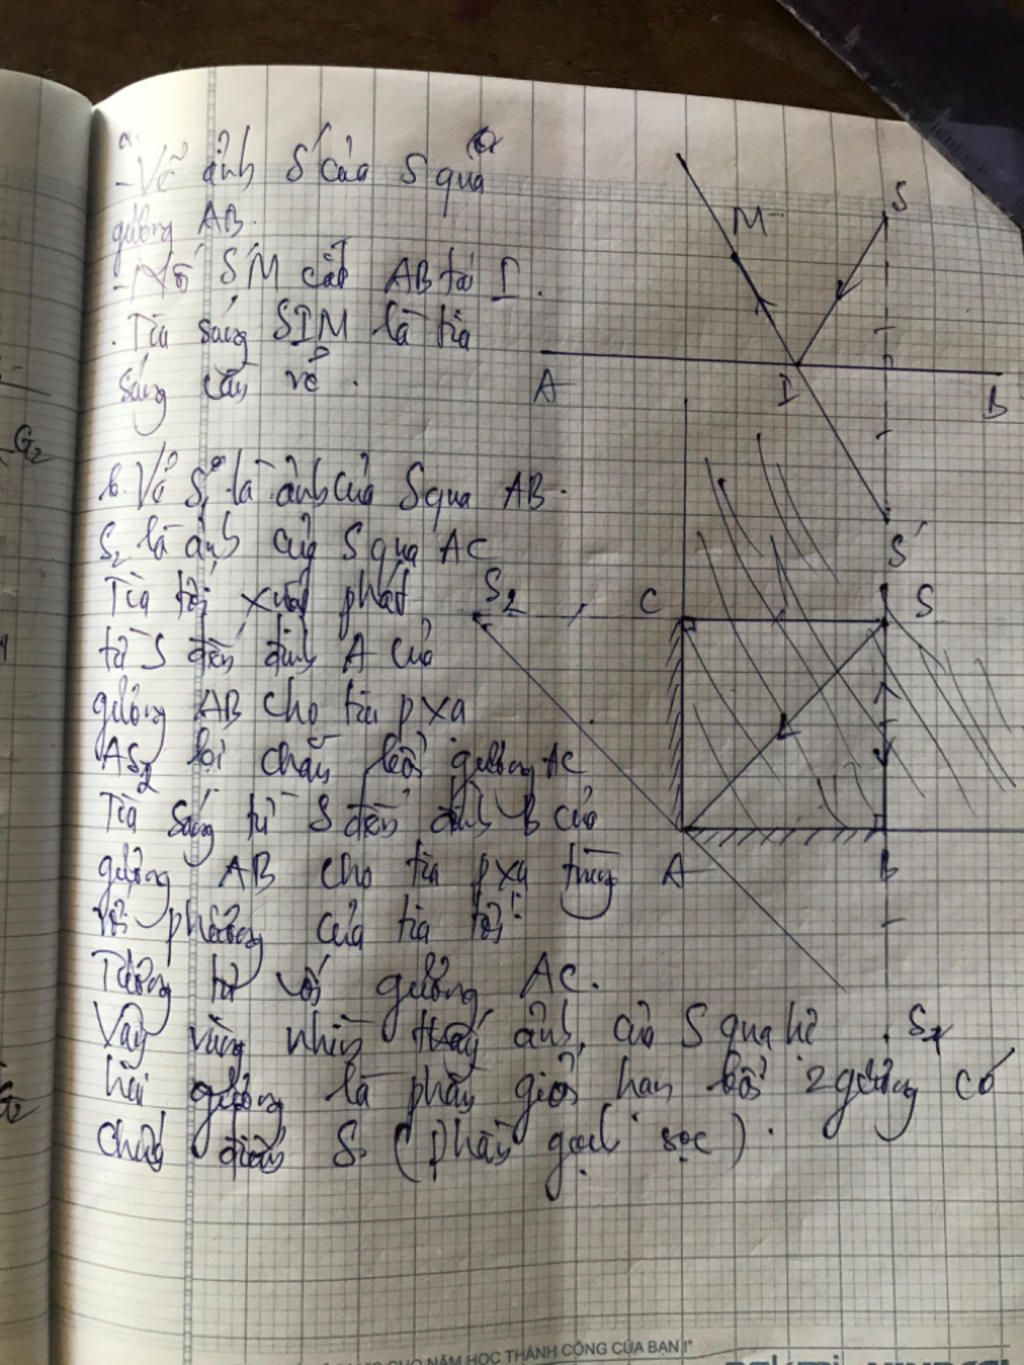 a.
- Vẽ ảnh S' của S qua
gương AB.
- Nối S'M cắt AB tại I.
. Tia sáng SIM là tia
sáng cần vẽ.
M
S
A
I
B
S'
G2
b. Vẽ S1 là ảnh của S qua AB.
S2 là ảnh của S qua AC
Tia tới xuất phát
từ S đến đỉnh A của
gương AB cho tia pxạ
AS2 bị chắn bởi gương AC
Tia sáng từ S đến đỉnh B của
gương AB cho tia pxạ trùng
với phương của tia tới.
Tương tự với gương AC.
Vậy vùng nhìn thấy ảnh của S qua hệ
hai gương là phần giới hạn bởi 2 gương có
chứa điểm S. (phần gạch sọc).
S2
C
S
A
B
S1
NĂM HỌC THÀNH CÔNG CỦA BẠN!"